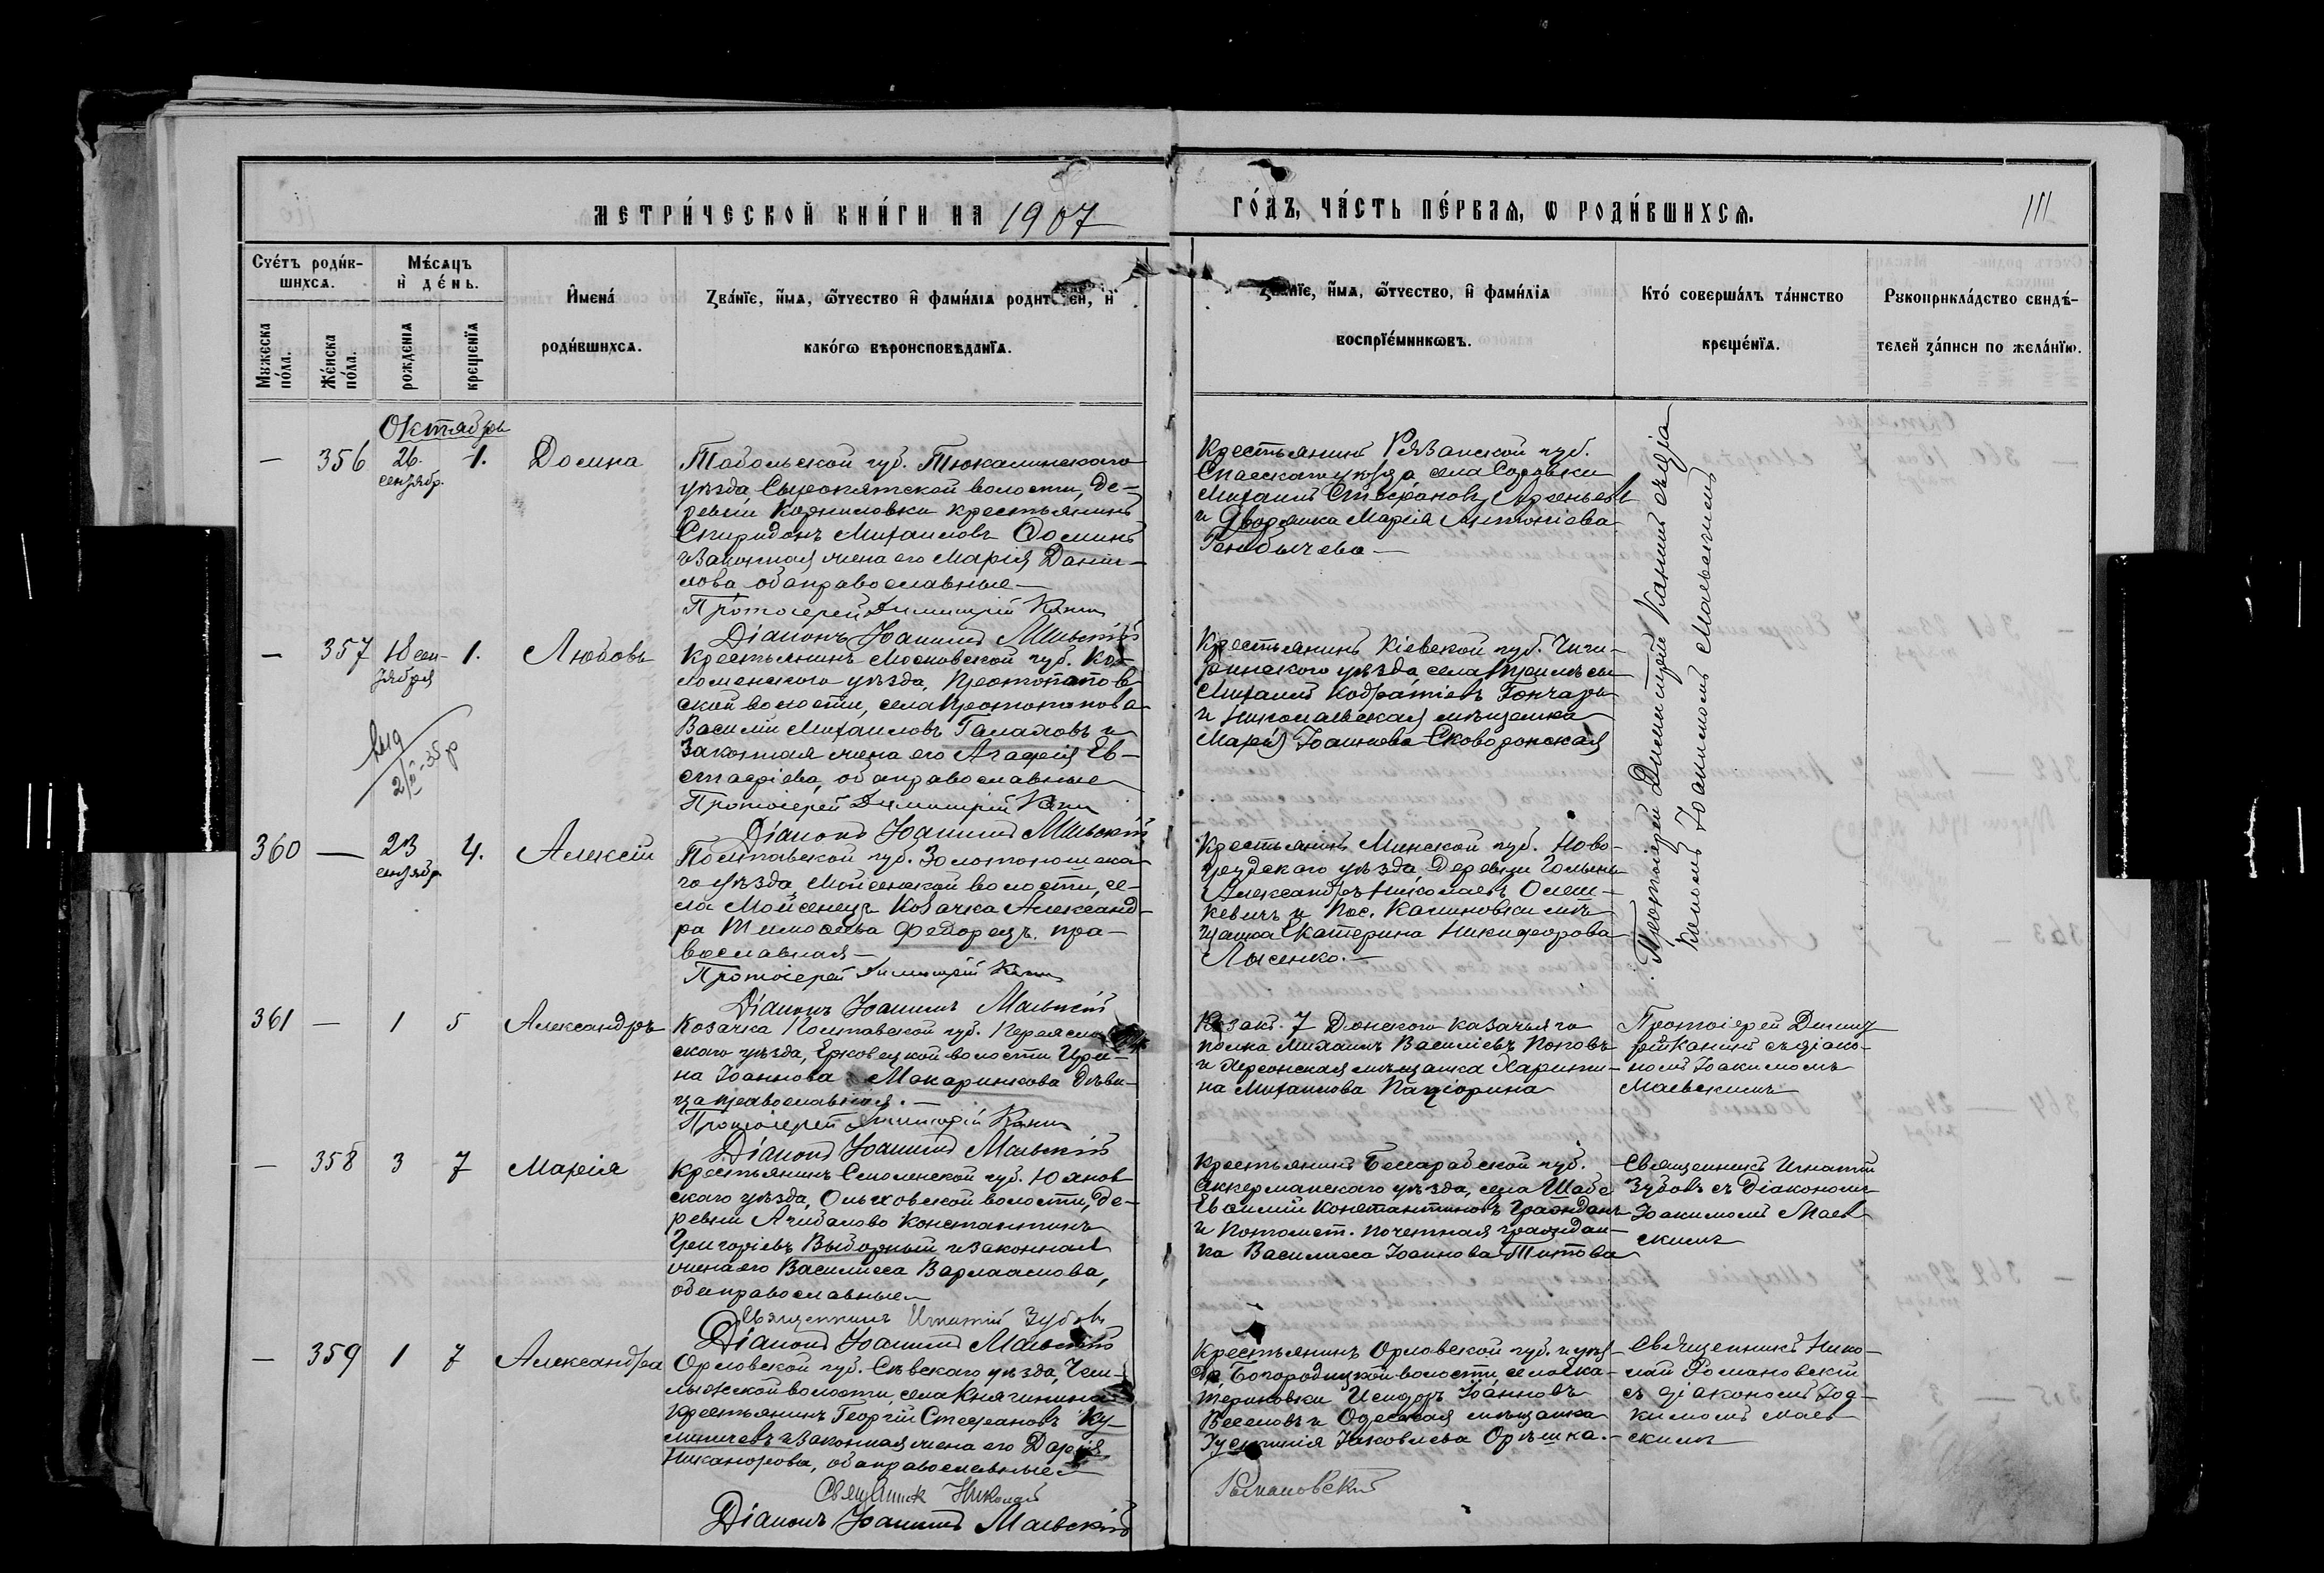 МЕТРИ́ЧЕСКОЙ КНИ́ГИ НА 1907
ГО́ДЪ, ЧА́СТЬ ПЕ́РВАѦ, Ѡ РОДИ́ВШИХСѦ.
111
Счє́тъ роди́в-
шихсѧ.
Мужеска
по́ла.
Же́нска
по́ла.
Мѣ́сѧцъ
и҆ де́нь.
рожденїѧ
крещенїѧ
И҆мена́
роди́вшихсѧ.
Зва́нїе, и҆́мѧ, ѻ҆́тчество и҆ фами́лїѧ родит ей, и҆
како́гѡ вѣроисповѣданїѧ.
Зва́нїе, и҆́мѧ, ѻ҆́тчество, и҆ фами́лїѧ
воспрїе́мникѡвъ.
Кто́ соверша́лъ та́инство
креще́нїѧ.
Рукоприкла́дство свидѣ́-
телей за́писи по жела́нїю.
Октябрь
— 356 26. сентябр. 1.
Домна
Тобольской губ. Тюкалинскаго
уѣзда, Сыропятской волости, де-
ревни Корниловки крестьянинъ
Спиридонъ Михаиловъ Ѳоминъ
и законная жена его Марія Дани-
лова, оба православные
Протоіерей Димитрій
Діаконъ Іоакимъ Маевскій
Крестьянинъ Рязанской губ.
Спасскаго уѣзда, села
Михаилъ Стефановъ Арсеньевъ
и Дворянка Марія Антоніева
— 357 18 сен-
тября 1.
Любовь
Крестьянинъ Московской губ. Ко-
ломенскаго уѣзда, Протопопов-
ской волости, села Протопопова
Василій Михаиловъ Галаховъ и
законная жена его Агафія Ев-
стафіева, оба православные
Протоіерей Димитрій
Діаконъ Іоакимъ Маевскій
Крестьянинъ Кіевской губ. Чиги-
ринскаго уѣзда, села
Михаилъ Кодратіевъ Гончаръ
и Николаевская мѣщанка
Марія Іоаннова Сководонская
выд
2/II-35 р
360 — 23 сентябр. 4.
Алексій
Полтавской губ. Золотоношска-
го уѣзда, Мойсенской волости, се-
ла Мойсенецъ козачка Александ-
ра Тимоѳеева Федорецъ, пра-
вославная
Протоіерей Димитрій
Діаконъ Іоакимъ Маевскій
Крестьянинъ Минской губ. Ново-
грудскаго уѣзда, деревни
Александръ Николаевъ Олеш-
кевичъ и Пос. Калиновки мѣ-
щанка Екатерина Никифорова
Лысенко.
Протоіерей Димитрій Канинъ съ діа-
кономъ Іоакимомъ Маевскимъ
361 — 1 5
Александръ
Козачка Полтавской губ. Переяслав
скаго уѣзда, Ерковецкой волости Ири-
на Іоаннова Макаринкова дѣви-
ца православная.
Протоіерей Димитрій
Діаконъ Іоакимъ Маевскій
Козакъ 7 Донского казачьяго
полка Михаилъ Василіевъ Поповъ
и Херсонская мѣщанка Харити-
на Михаилова
Протоіерей Димит
рій Канинъ съ діако-
номъ Іоакимомъ
Маевскимъ
— 358 3 7
Марія
Крестьянинъ Смоленской губ. Юхнов
скаго уѣзда, Ольховской волости, де-
ревни Ачибалово Константинъ
Григоріевъ Выборный и законная
жена его Василисса Варлаамова,
оба православные
Священникъ Игнатій Зубовъ
Діаконъ Іоакимъ Маевскій
Крестьянинъ Бессарабской губ.
Аккерманскаго уѣзда, села Шабо
Евѳимій Константиновъ Гражданъ
и Потомст. почетная граждан-
ка Василисса Іоаннова Титова
Священникъ Игнатій
Зубовъ съ Діакономъ
Іоакимомъ Маев
скимъ
— 359 1 7
Александра
Орловской губ. Сѣвскаго уѣзда, Чем-
лыжской волости, села Княгинина
Крестьянинъ Георгій Стефановъ Ку-
личевъ и законная жена его Дарія
Никанорова, оба православные
Священник Николай
Романовский
Діаконъ Іоакимъ Маевскій
Крестьянинъ Орловской губ. и уѣз-
да, Богородицкой волости, села Ека-
териновки Исидоръ Іоанновъ
Веселовъ и Одесская мѣщанка
Іустинія Іаковлева Орѣшка.
Священникъ Нико-
лай Романовскій
съ діакономъ Іоа-
кимомъ Маев
скимъ